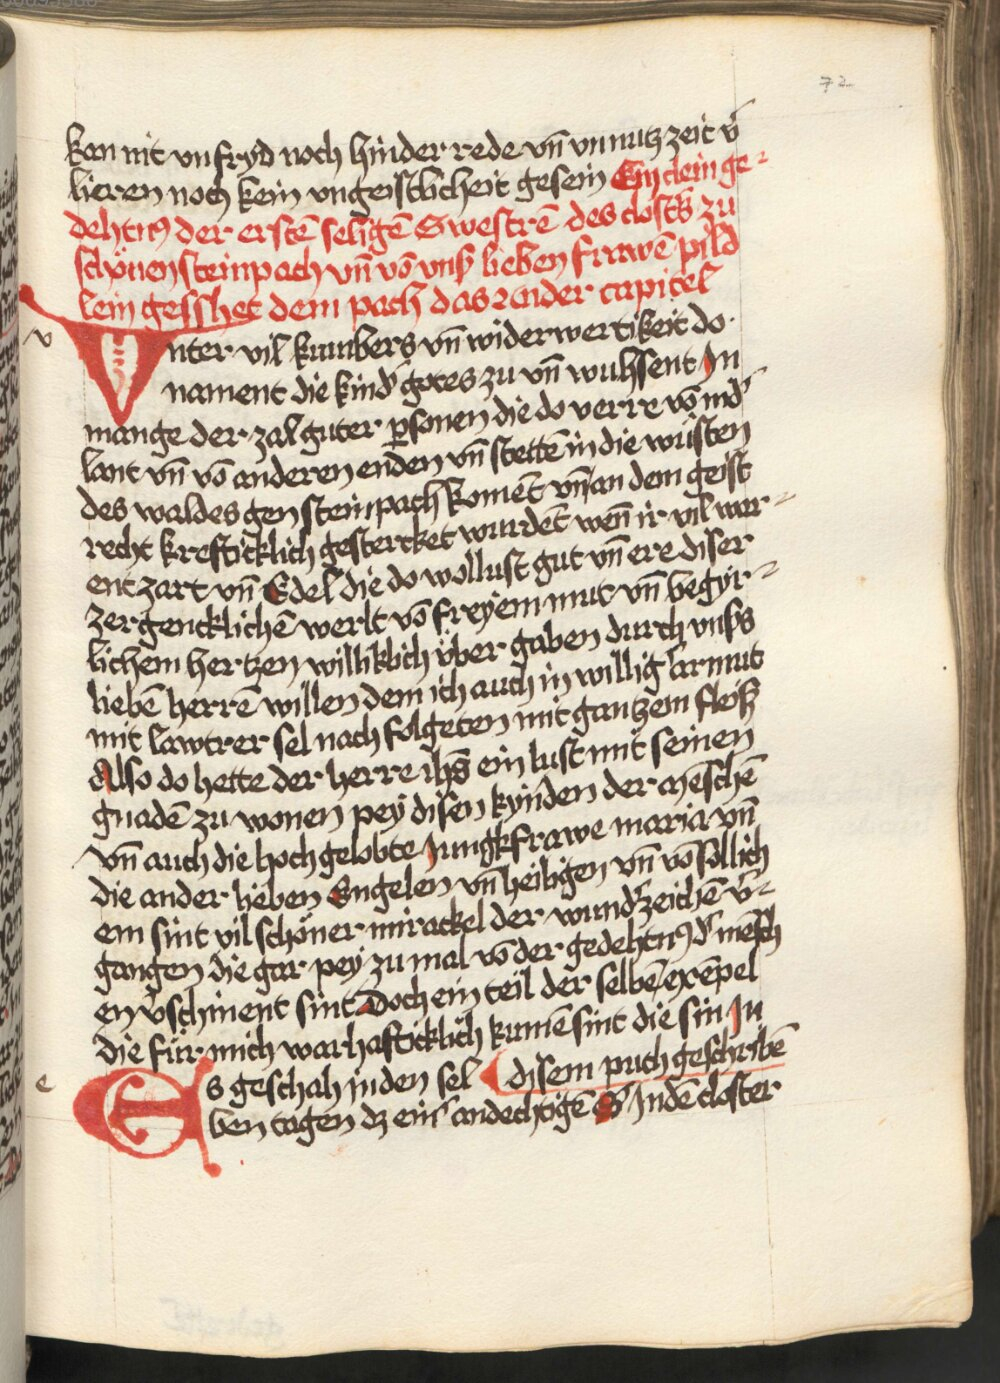 72
kan nit vnfryd noch hinder rede vn̄ vnnutz zeit v̾
lieren noch kein vngeistlicheit gesein Ein clein ge-
dehtnꝰ der erstē seligē Swestrē des closters zu
schönensteinpach vn̄ vō vnß lieben frawē pild
lein gesshet dem pach das ander capitel
v
Vnter vil kumbers vn̄ widerwertikeit do
nament die kind̾ gotes zu vn̄ wuhsent In
mange der zal guter ꝑsonen die do verre vō nid̾
lant vn̄ vō anderen enden vn̄ stettē in die wüsten
des waldes gen steinpach komēt vn̄ an dem geist
recht kreftiklich gestercket wurdēt wen̄ ir vil war-
ent zart vn̄ Edel die do wollust gut vn̄ ere diser
zergencklichē werlt vō freyem mut vn̄ begyr-
lichem hertzen williklich über gaben durch vnßs
liebē herrē willen dem ich auch in willig̾ armut
mit lawtrer sel nach folgeten mit gantzem fleiß
Also do hette der herre ihs̄ ein lust mit seinen
gnadē zu wonen pey disen kynden der mēschē
vn̄ auch die hochgelobte Jungkfrawe maria vn̄
die ander lieben Engelen vn̄ heiligen vn̄ vō sollich
em sint vil schöner mirackel der wund̾zeichē v̾-
gangen die gar pey zu mal vō der gedehtnꝰ d̾ mēsch
en v̾schinent sint Doch ein teil der selbē exēpel
die für mich warhafticklich kumē sint die sin In
disem puch geschribē
e
Es geschah in den sel
ben tagen dz ein̾ andechtigē S̾ In dē closter